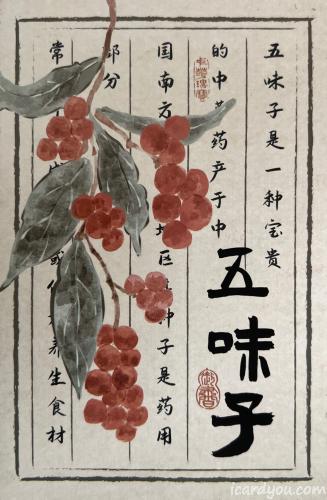 五味子是一种宝贵
的中 药产于中
国南方 区 种子是药用
部分
常 或 养生食材
五味子
icardyou.com